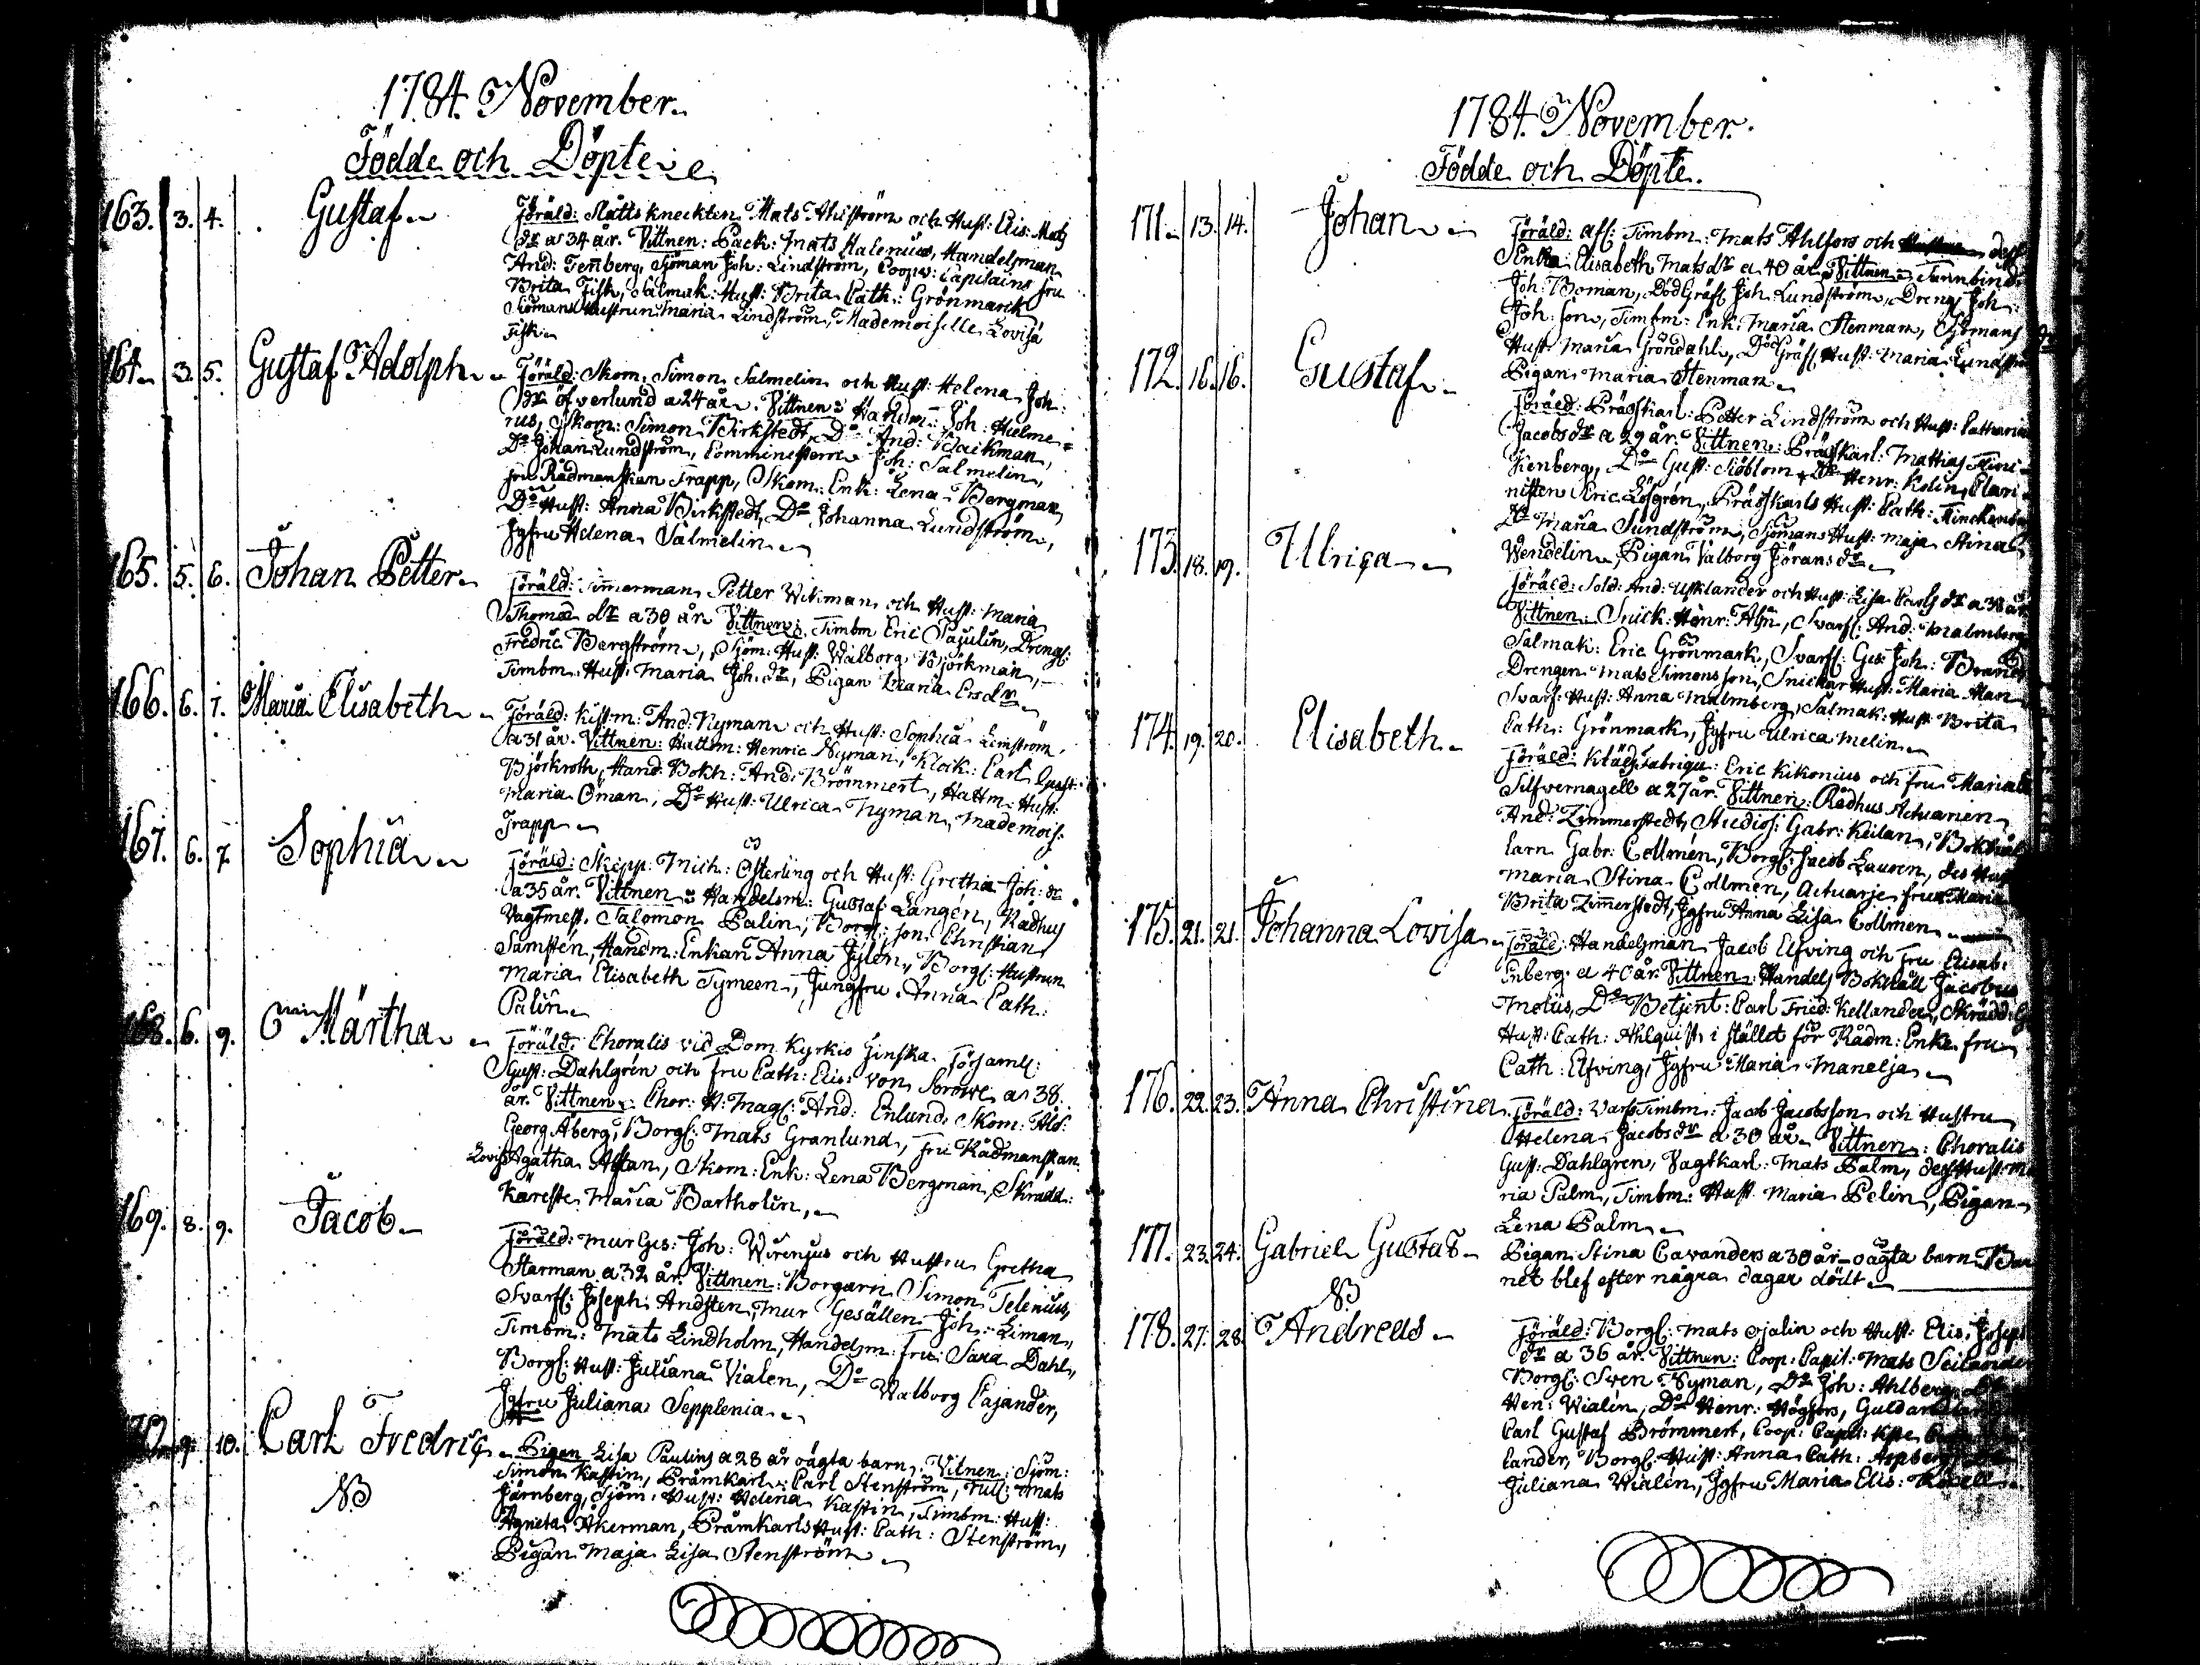 1784. November.
Födde och Döpte
163. 3. 4. Gustaf
Föräld: Slåtts kneckten Mats Ahlström och Hust: Elis: Mats
dr a 34 år. Vittnen: Pack: Mats Halenius, Handelsman
And: Tenberg, Sjöman Joh: Lindström, Coopv: Capitains fru
Brita Fisk, Salmak: Hust: Brita Cath: Grönmark
Siömans Hustrun Maria Lindström, Mademoiselle Lovisa
Fisk
164. 3. 5. Gustaf Adolph
Föräld: Skom: Simon Salmelin och Hust: Helena Joh:
dr Öfverlund a 24 år. Vittnen: Handm: Joh: Hielme=
rus, Skom: Simon Birkstedt, Do And: Backman,
Do Johan Lundström, Comministern Joh: Salmelin,
fru Rådmanskan Trapp, Skom: Enk: Lena Bergman,
Do Hust: Anna Birkstedt, Do Johanna Lundström,
Jgfru Helena Salmelin
165. 5. 6. Johan Petter
Föräld: Timmerman Petter Wikman och Hust: Maria
Thomæ dr a 30 år Vittnen: Timbm Eric Paulin, Drengs:
Fredric Bergström, Sjöm: Hust: Walborg Björkman,
Timbm: Hust: Maria Joh: dr, Pigan Maria Ersdr
166. 6. 7. Maria Elisabeth
Föräld: Kistm: And: Nyman och Hust: Sophia Lemström
a 31 år. Vittnen: Hattm: Henric Nyman, Klock: Carl Gust:
Björkroth, Hand: Bokh: And: Brömmert, Hattm: Hust:
Maria Öman, Do Hust: Ulrica Nyman, Mademois:
Trapp
167. 6. 7 Sophia
Föräld: Skepp: Mich: Österling och Hust: Gretha Joh: dr
a 35 år. Vittnen: Handelsm: Gustaf Langén, Rådhus
Vagtmest. Salomon Palin, Borgs: son Christian
Samstén, Handm: Enkan Anna Jylén, Borgs: Hustrun
Maria Elisabeth Tymeen, Jungfru Anna Cath:
Palin
168. 6. 9. Märtha
Föräld: Choralis vid Dom Kyrkio Finska Församl:
Gust: Dahlgrén och fru Cath: Elis: von Sorowe a 38
år. Vittnen: Chor: H: Mags: And: Enlund, Skom: Åld:
Georg Åberg, Borgs: Mats Granlund, fru Rådmanskan
Agatha Askan, Skom: Enk: Lena Bergman, Skrädd:
Käreste Maria Bartholin,
169. 8. 9. Jacob
Föräld: Mur Ges: Joh: Wirenius och Hustru Gretha
Starman a 32 år. Vittnen: Borgarn Simon Telenius,
Svarfs: Joseph Andsten, Mur Gesällen Joh: Liman,
Timbm: Mats Lindholm, Handelsm: fru Sara Dahl,
Borgs: Hust: Juliana Vialen, Do Walborg Cajander,
Jgfru Juliana Sepplenia
170. 9. 10. Carl Fredric
NB
Pigan Lisa Paulins a 28 år oägta barn. Vitnen: Sjöm:
Simon Kastin, Pråmkarl: Carl Stenström, Tull: Mats
Järnberg, Sjöm: Hust: Helena Kastin, Timbm: Hust:
Agneta Åkerman, Pråmkarls Hust: Cath: Stenström,
Pigan Maja Lisa Stenström
1784. November.
Födde och Döpte.
171. 13. 14. Johan
Föräld: afl: Timbm: Mats Ahlfors och dess
Enka Elisabeth Matsdr a 40 år Vittnen: Tunnbind:
Joh: Boman, Död Gräf: Joh: Lundström, Dreng Joh:
Joh: son, Timbm: Enk: Maria Stenman, Sjömans
Hust: Maria Gröndahl, Död Gräf: Hust: Maria Lundström
Pigan Maria Stenman
172. 16. 16. Gustaf
Föräld: Prässkarl: Petter Lindström och Hust: Catharina
Jacobsdr a 29 år. Vittnen: Prässkarl: Mattias Finc=
kenberg, Do Gust: Siöblom, Do Henr: Kolin, Clari=
nisten Eric Löfgrén, Prässkarls Hust: Cath: Finckenberg
Do Maria Sundström, Sjömans Hust: Maja Stina
Wendelin, Pigan Valborg Jörans dr
173. 18. 19. Ulrica
Föräld: Sold: And: Uplander och Hust: Lisa Carls dr a 38 år
Vittnen: Snick: Henr: Alm, Svarfs: And: Malmberg
Salmak: Eric Grönmark, Svarfs: Ges: Joh: Brander
Drengen Mats Simonsson, Snickar Hust: Maria Alan
Svarf: Hust: Anna Malmberg, Salmak: Hust: Brita
Cath: Grönmark, Jgfru Ulrica Melin
174. 19. 20. Elisabeth
Föräld: Klädsfabriqu: Eric Kikonius och fru Maria
Silfvernagell a 27 år. Vittnen: Rådhus Actuarien
And: Zimmerstedt, Studios: Gabr: Keilan, Bokhål
larn Gabr: Collmén, Borgs: Jacob Lauren, des Hust
Maria Stina Collmén, Actuarje frun Maria
Brita Zimmerstedt, Jgfru Anna Lisa Collmen
175. 21. 21. Johanna Lovisa
Föräld: Handelsman Jacob Elfving och fru Elisab:
Enberg a 40 år. Vittnen: Handels Bokhåll: Jacobus
Motius, Do Betjent: Carl Fried: Kellander, Skrädd:
Hust: Cath: Ahlquist i stället för Rådm: Enke fru
Cath: Elfving, Jgfru Maria Manelja
176. 22. 23. Anna Christina
Föräld: Varfs Timbm: Jacob Jacobsson och Hustru
Helena Jacobsdr a 30 år. Vittnen: Choralis
Gust: Dahlgren, Vagtkarl: Mats Palm, dess Hust: Ma
ria Palm, Timbm: Hust: Maria Pelin, Pigan
Lena Palm
177. 23. 24. Gabriel Gustaf
NB
Pigan Stina Cavanders a 30 år oägta barn. Bar
net blef efter några dagar dödt
178. 27. 28 Andreas
Föräld: Borgs: Mats Ojalin och Hust: Elis: Joseps
dr a 36 år. Vittnen: Coop: Capit: Mats Seilander
Borgs: Sven Nyman, Do Joh: Ahlberg,
Hen: Wialén, Do Henr: Högfors, Guldar
Carl Gustaf Brömmert, Coop: Capit:
lander, Borgs: Hust: Anna Cath: Aspberg
Juliana Wialén, Jgfru Maria Elis: